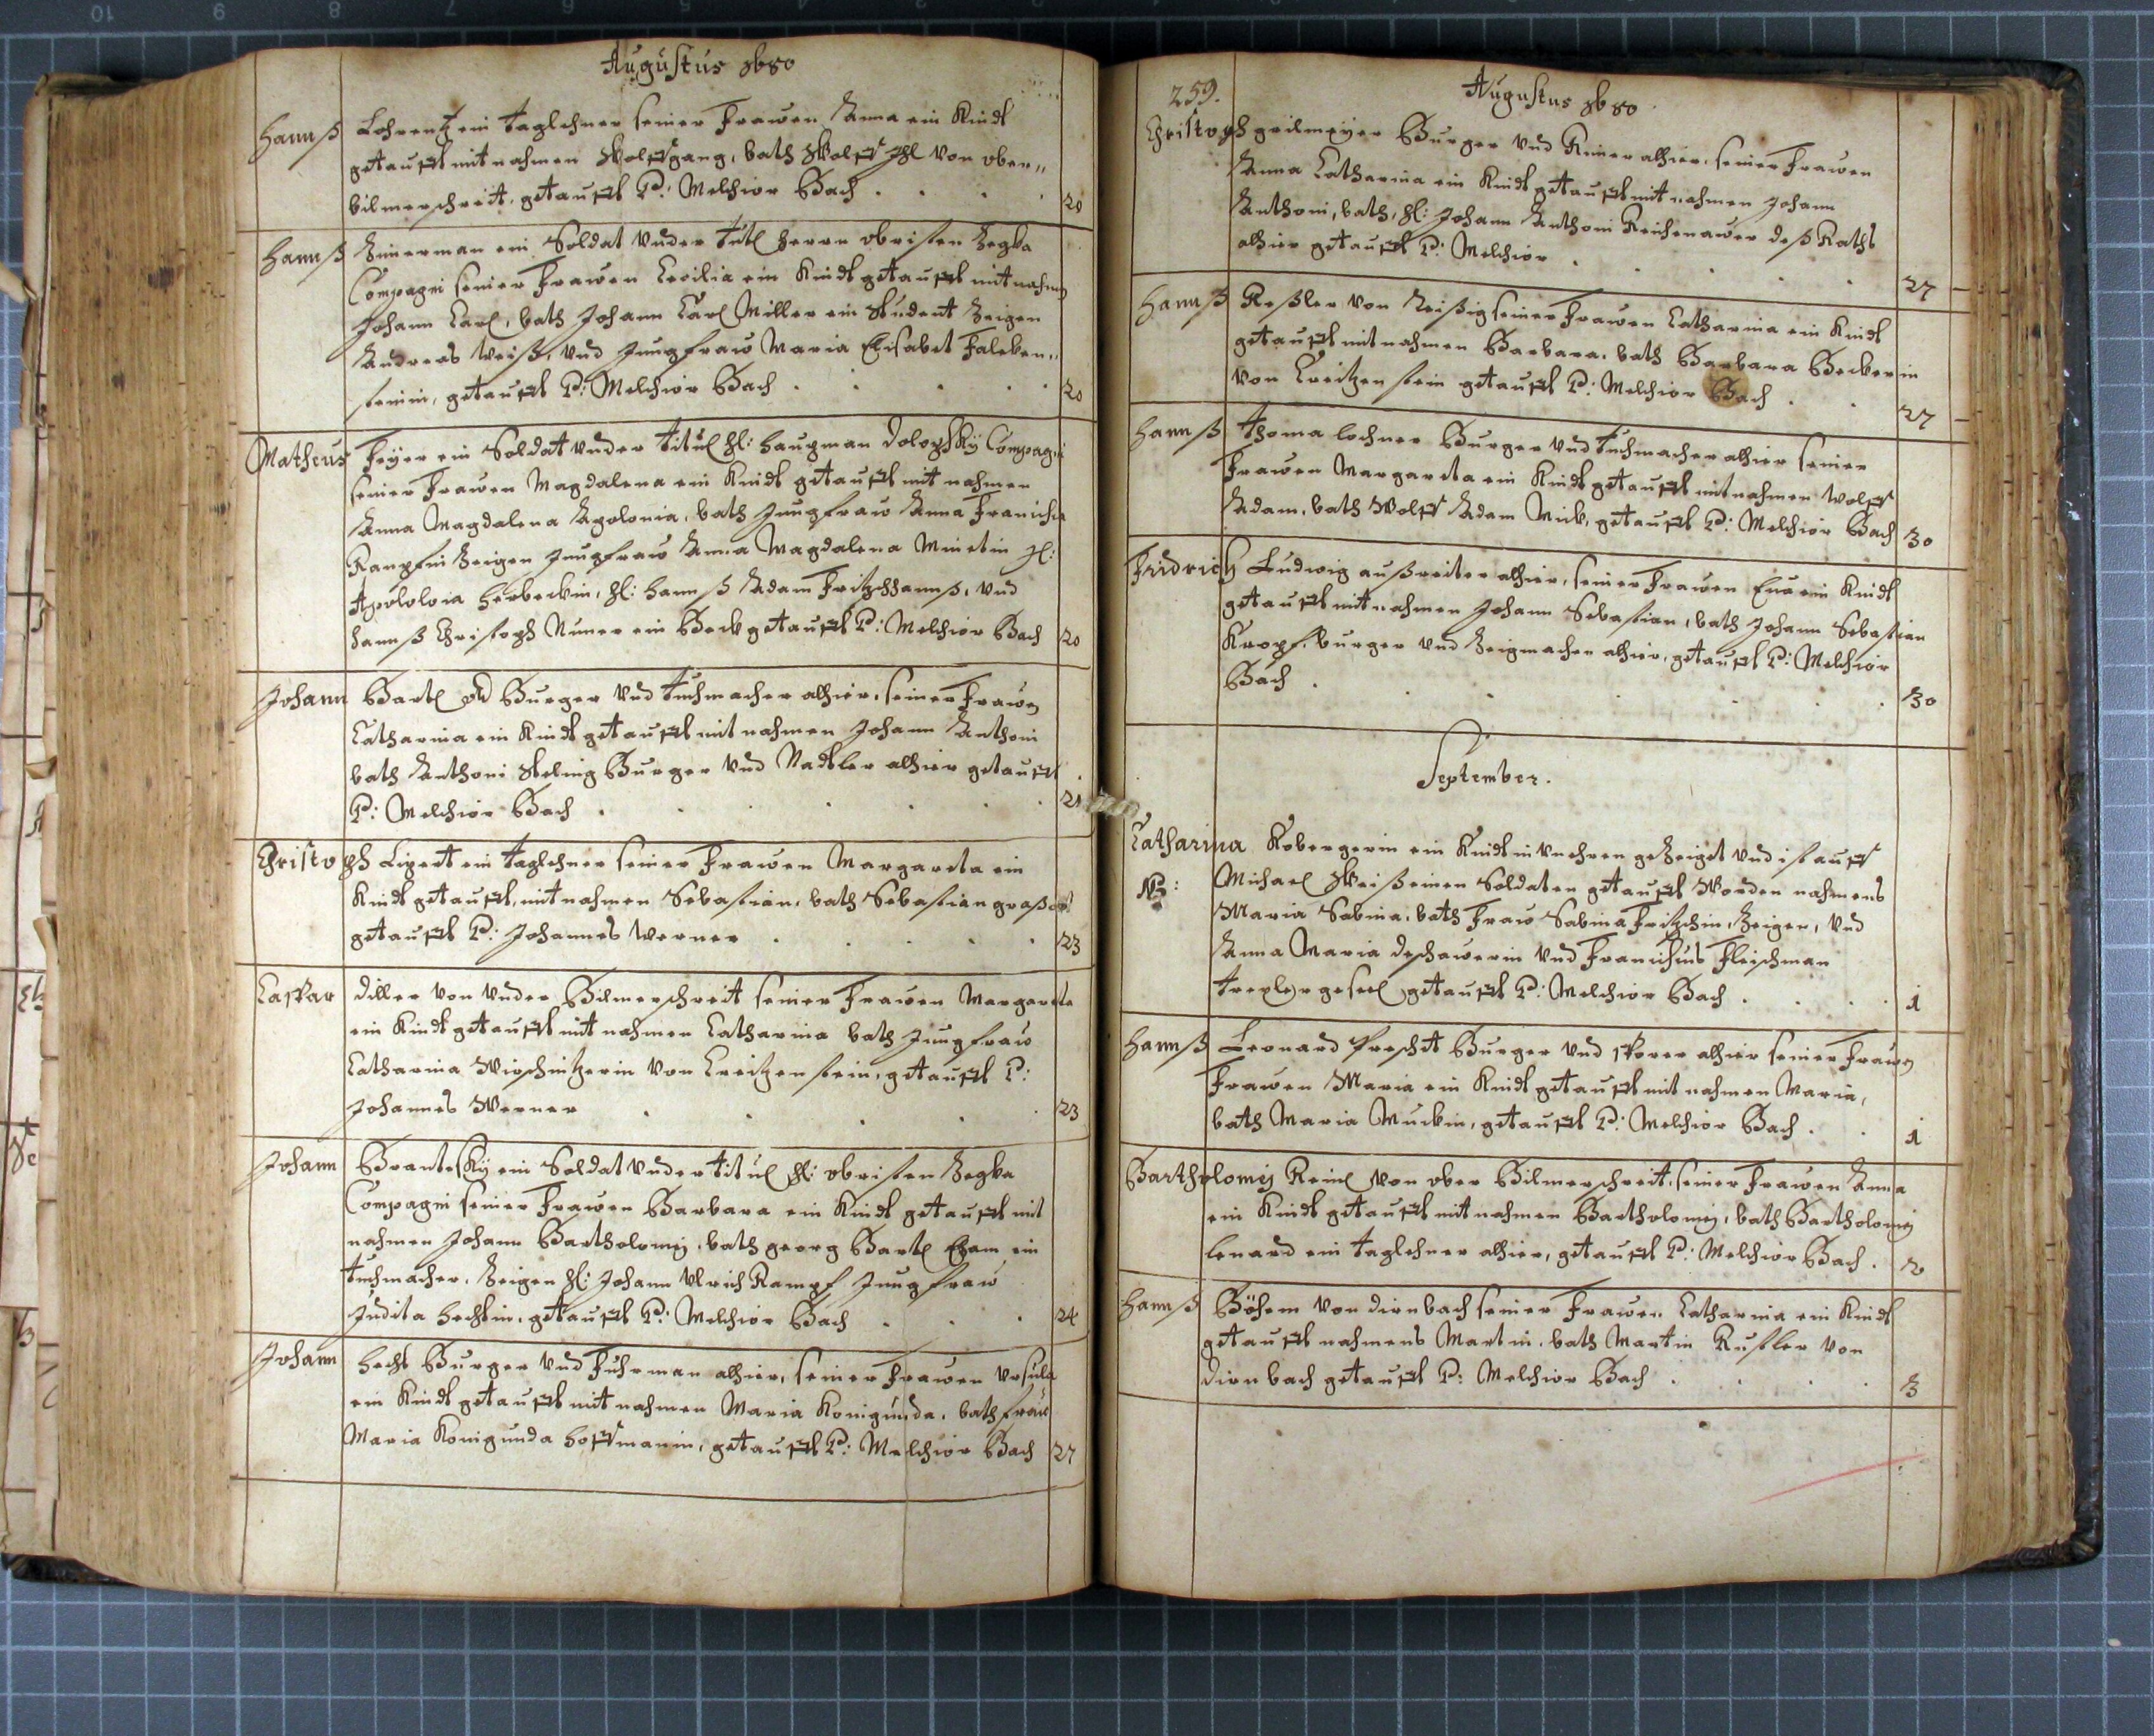 Augustus 1680
Hannß Lohrentz ein Taglehner seiner Frawen Anna ein Kindt
getaufft mit nahmen Wolffgang, bath Wolff von ober-
bilmerschreit, getaufft P: Melchior Bach . . . 20
Hannß Zimerman ein Soldat under Titl herrn obristen
Compagni seiner Frawen Cecilia ein Kindt getaufft mit nahmen
Johann Carl, bath Johann Carl Miller ein Student Zeigen
Andreas Weiß, und Jungfraw Maria Elisabet Falcken-
steinin, getaufft P: Melchior Bach . . . 20
Matheus Feyer ein Soldat under Titul H: Haupman Compagni
seiner Frawen Magdalena ein Kindt getaufft mit nahmen
Anna Magdalena Apolonia, bath Jungfraw Anna
Zeigen Jungfraw Anna Magdalena
H: Hannß Adam und
Hannß Christoph ein Beck getaufft P: Melchior Bach 20
Johann Bartl Burger und Tuchmacher alhier, seiner Frawen
Catharina ein Kindt getaufft mit nahmen Johann Anthoni
bath Anthoni Burger und Nadtler alhier getaufft
P: Melchior Bach . . . 21
Christoph Lipert ein Taglehner seiner Frawen Margareta ein
Kindt getaufft, mit nahmen Sebastian, bath Sebastian
getaufft P: Johannes Werner . . . 23
Caspar Diller von under Bilmerschreit seiner Frawen Margareta
ein Kindt getaufft mit nahmen Catharina bath Jungfraw
Catharina Wirschnitzerin von Creitzenstein, getaufft P:
Johannes Werner . . . 23
Johann ein Soldat under Titul H: obristen
Compagni seiner Frawen Barbara ein Kindt getaufft mit
nahmen Johann Bartholomej, bath Georg Bartl ein
Tuchmacher, Zeigen H: Johann Ulrich Kampf Jungfraw
Judita Hechtin, getaufft P: Melchior Bach . . . 24
Johann Hecht Burger und Fuhrman alhier, seiner Frawen Ursula
ein Kindt getaufft mit nahmen Maria Konigunda, bath fraw
Maria Konigunda Hoffmanin, getaufft P: Melchior Bach 27
259.
Augustus 1680
Christoph Burger und alhier, seiner Frawen
Anna Catharina ein Kindt getaufft mit nahmen Johann
Anthoni, bath, H: Johann Anthoni Reichenawer deß Raths
alhier getaufft P: Melchior . . . 27
Hannß Keßler von seiner Frawen Catharina ein Kindt
getaufft mit nahmen Barbara, bath Barbara Beckerin
von Creitzenstein getaufft P: Melchior Bach . . 27
Hannß Thoma Lochner Burger und Tuchmacher alhier seiner
Frawen Margareta ein Kindt getaufft mit nahmen Wolff
Adam, bath Wolff Adam Mick, getaufft P: Melchior Bach 30
Fridrich Ludwig außreiter alhier, seiner Frawen Eua ein Kindt
getaufft mit nahmen Johann Sebastian, bath Johann Sebastian
Kropf, burger und Zeigmacher alhier, getaufft P: Melchior
Bach . . . 30
September.
Catharina Kobergerin ein Kindt in unehren gezeiget und ist auff
NB: Michael einen Soldaten getaufft worden nahmens
Maria Sabina, bath Fraw Sabina Fritzschin, Zeigen, und
Anna Maria und Francischus Fleischman
getaufft P: Melchior Bach . . . 1
Hannß Leonard Burger und alhier seiner Frawen
Frawen Maria ein Kindt getaufft mit nahmen Maria,
bath Maria Muckin, getaufft P: Melchior Bach . . 1
Bartholomej von ober Bilmerschreit, seiner Frawen Anna
ein Kindt getaufft mit nahmen Bartholomej, bath Bartholomej
Lenard ein Taglehner alhier, getaufft P: Melchior Bach . 2
Hannß Böhem von Dirnbach seiner Frawen Catharina ein Kindt
getaufft nahmens Martin, bath Martin Kustler von
Dirnbach getaufft P: Melchior Bach . . . 3